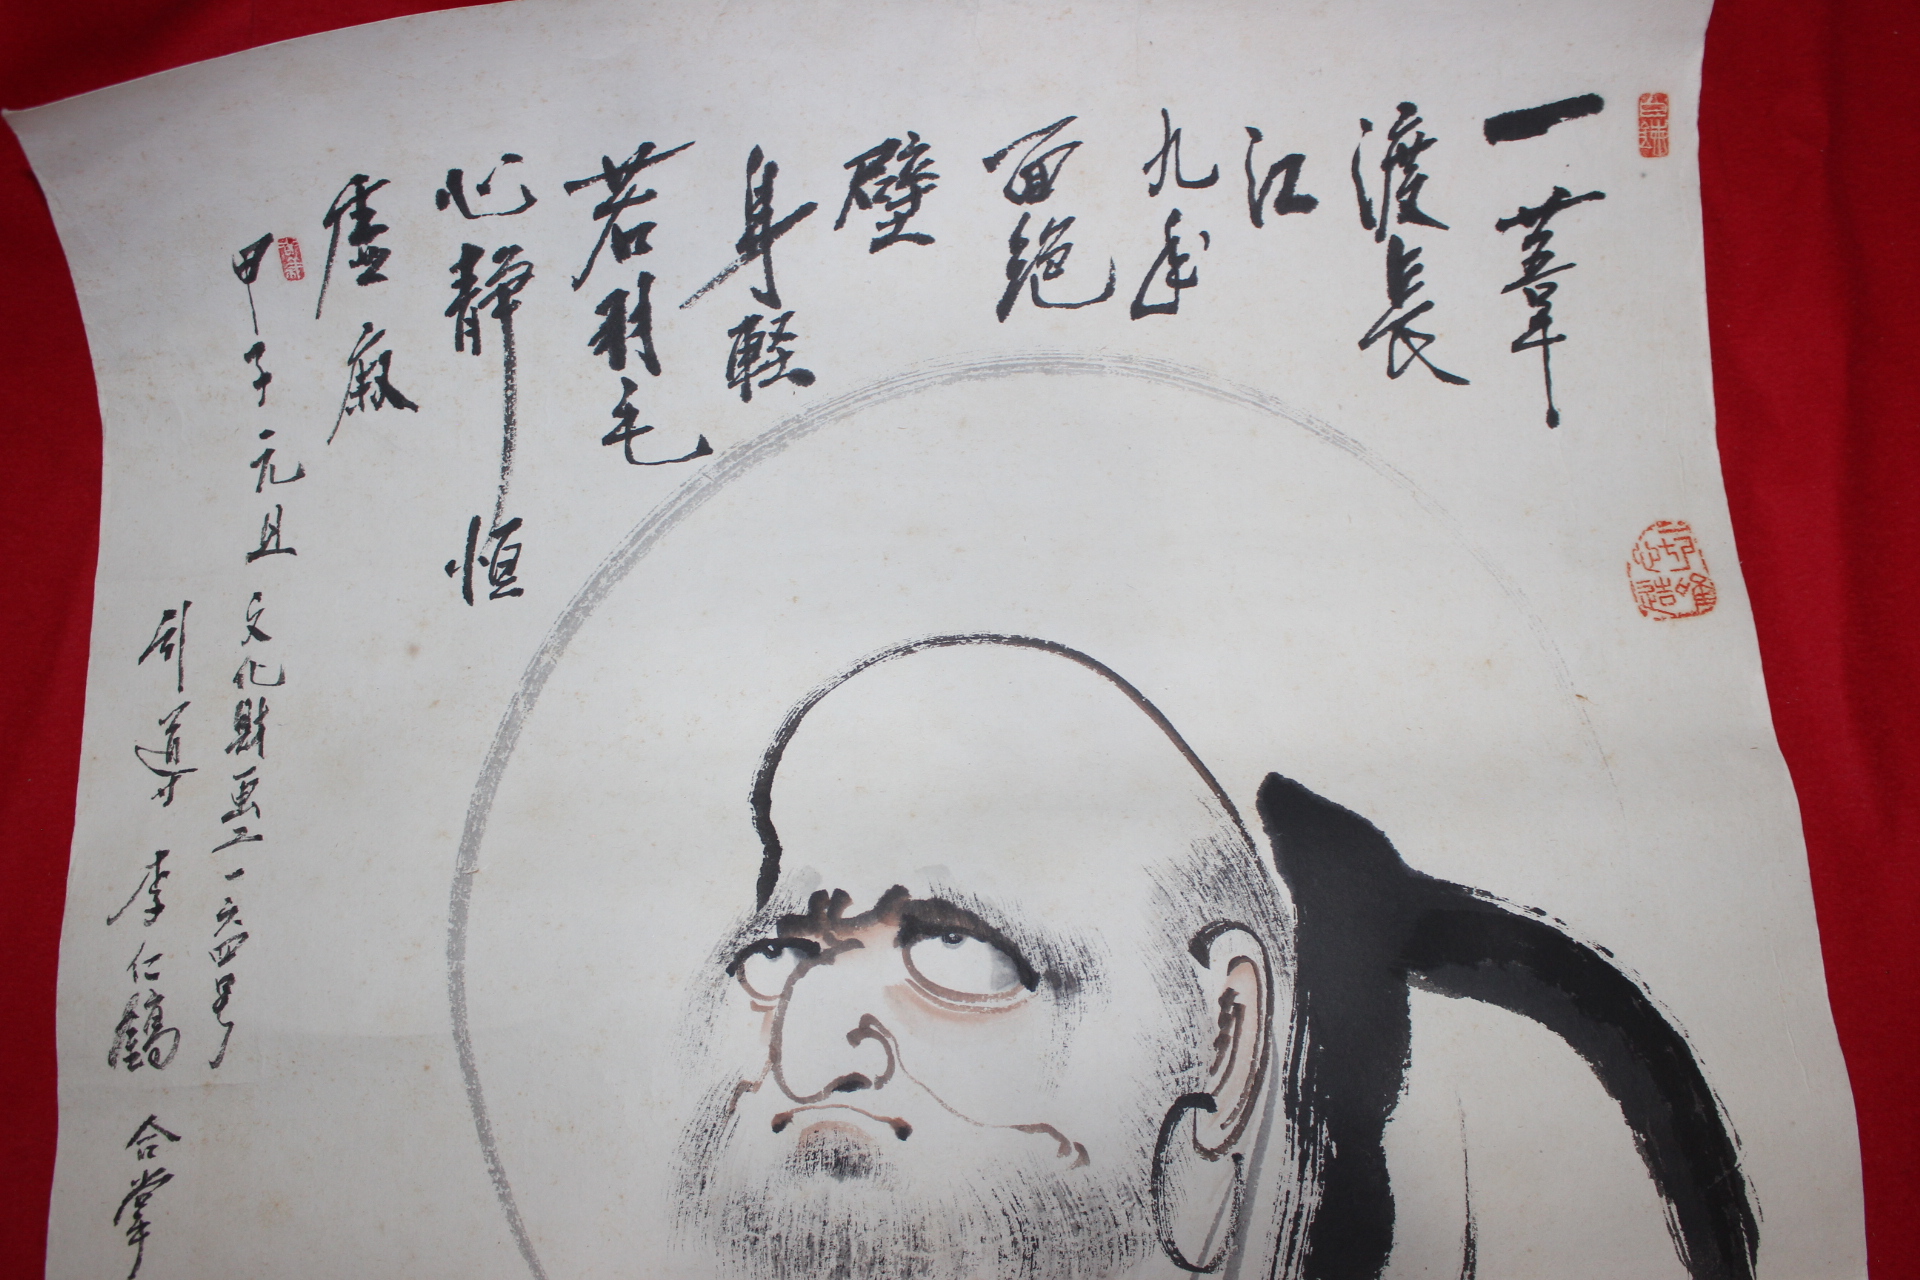 一葦
渡長
江
九年
面絶
壁
身軽
若羽毛
心静恒
虚寂
甲子元旦 文化財画工一六四号
引導 李仁鶴 合掌